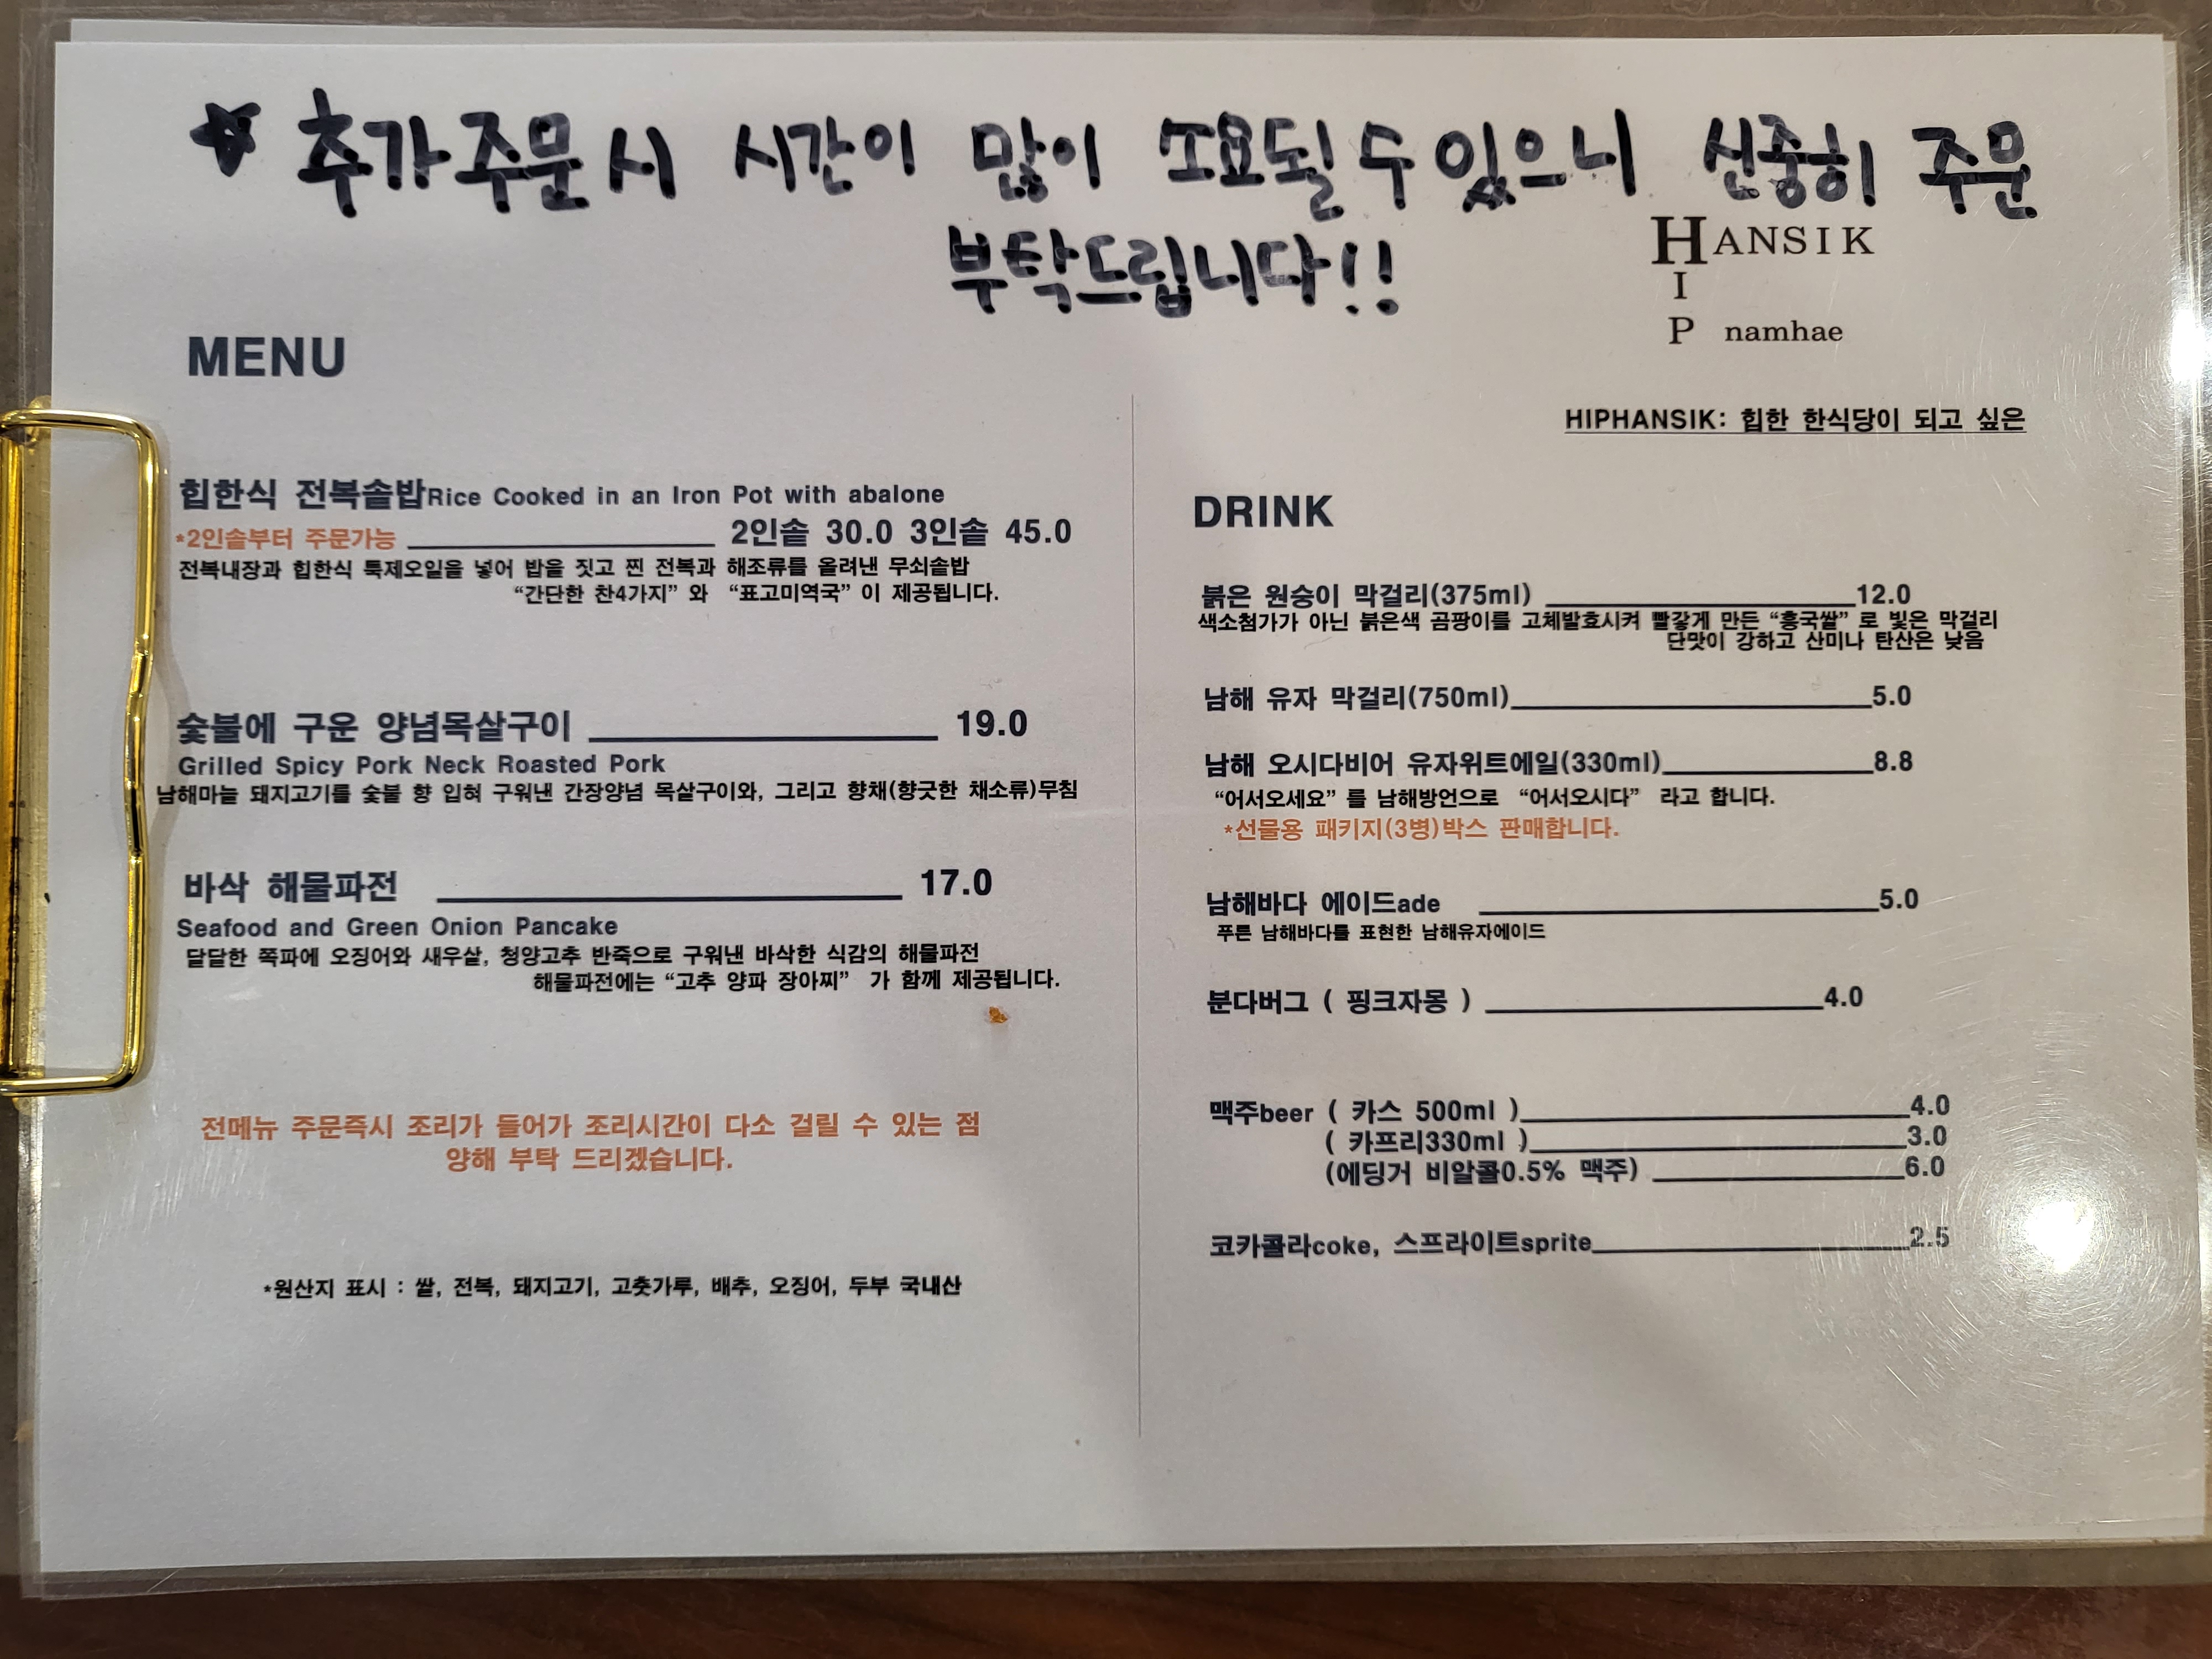 ★ 추가주문시 시간이 많이 소요될 수 있으니 신중히 주문
부탁드립니다!!
HANSIK
I
P namhae
MENU
HIPHANSIK: 힙한 한식당이 되고 싶은
힙한식 전복솥밥Rice Cooked in an Iron Pot with abalone
*2인솥부터 주문가능 2인솥 30.0 3인솥 45.0
전복내장과 힙한식 특제오일을 넣어 밥을 짓고 찐 전복과 해조류를 올려낸 무쇠솥밥
“간단한 찬4가지” 와 “표고미역국” 이 제공됩니다.
숯불에 구운 양념목살구이 19.0
Grilled Spicy Pork Neck Roasted Pork
남해마늘 돼지고기를 숯불 향 입혀 구워낸 간장양념 목살구이와, 그리고 향채(향긋한 채소류)무침
바삭 해물파전 17.0
Seafood and Green Onion Pancake
달달한 쪽파에 오징어와 새우살, 청양고추 반죽으로 구워낸 바삭한 식감의 해물파전
해물파전에는 “고추 양파 장아찌” 가 함께 제공됩니다.
전메뉴 주문즉시 조리가 들어가 조리시간이 다소 걸릴 수 있는 점
양해 부탁 드리겠습니다.
*원산지 표시 : 쌀, 전복, 돼지고기, 고춧가루, 배추, 오징어, 두부 국내산
DRINK
붉은 원숭이 막걸리(375ml) 12.0
색소첨가가 아닌 붉은색 곰팡이를 고체발효시켜 빨갛게 만든 “홍국쌀” 로 빚은 막걸리
단맛이 강하고 산미나 탄산은 낮음
남해 유자 막걸리(750ml) 5.0
남해 오시다비어 유자위트에일(330ml) 8.8
“어서오세요” 를 남해방언으로 “어서오시다” 라고 합니다.
*선물용 패키지(3병)박스 판매합니다.
남해바다 에이드ade 5.0
푸른 남해바다를 표현한 남해유자에이드
분다버그 ( 핑크자몽 ) 4.0
맥주beer ( 카스 500ml ) 4.0
( 카프리330ml ) 3.0
(에딩거 비알콜0.5% 맥주) 6.0
코카콜라coke, 스프라이트sprite 2.5